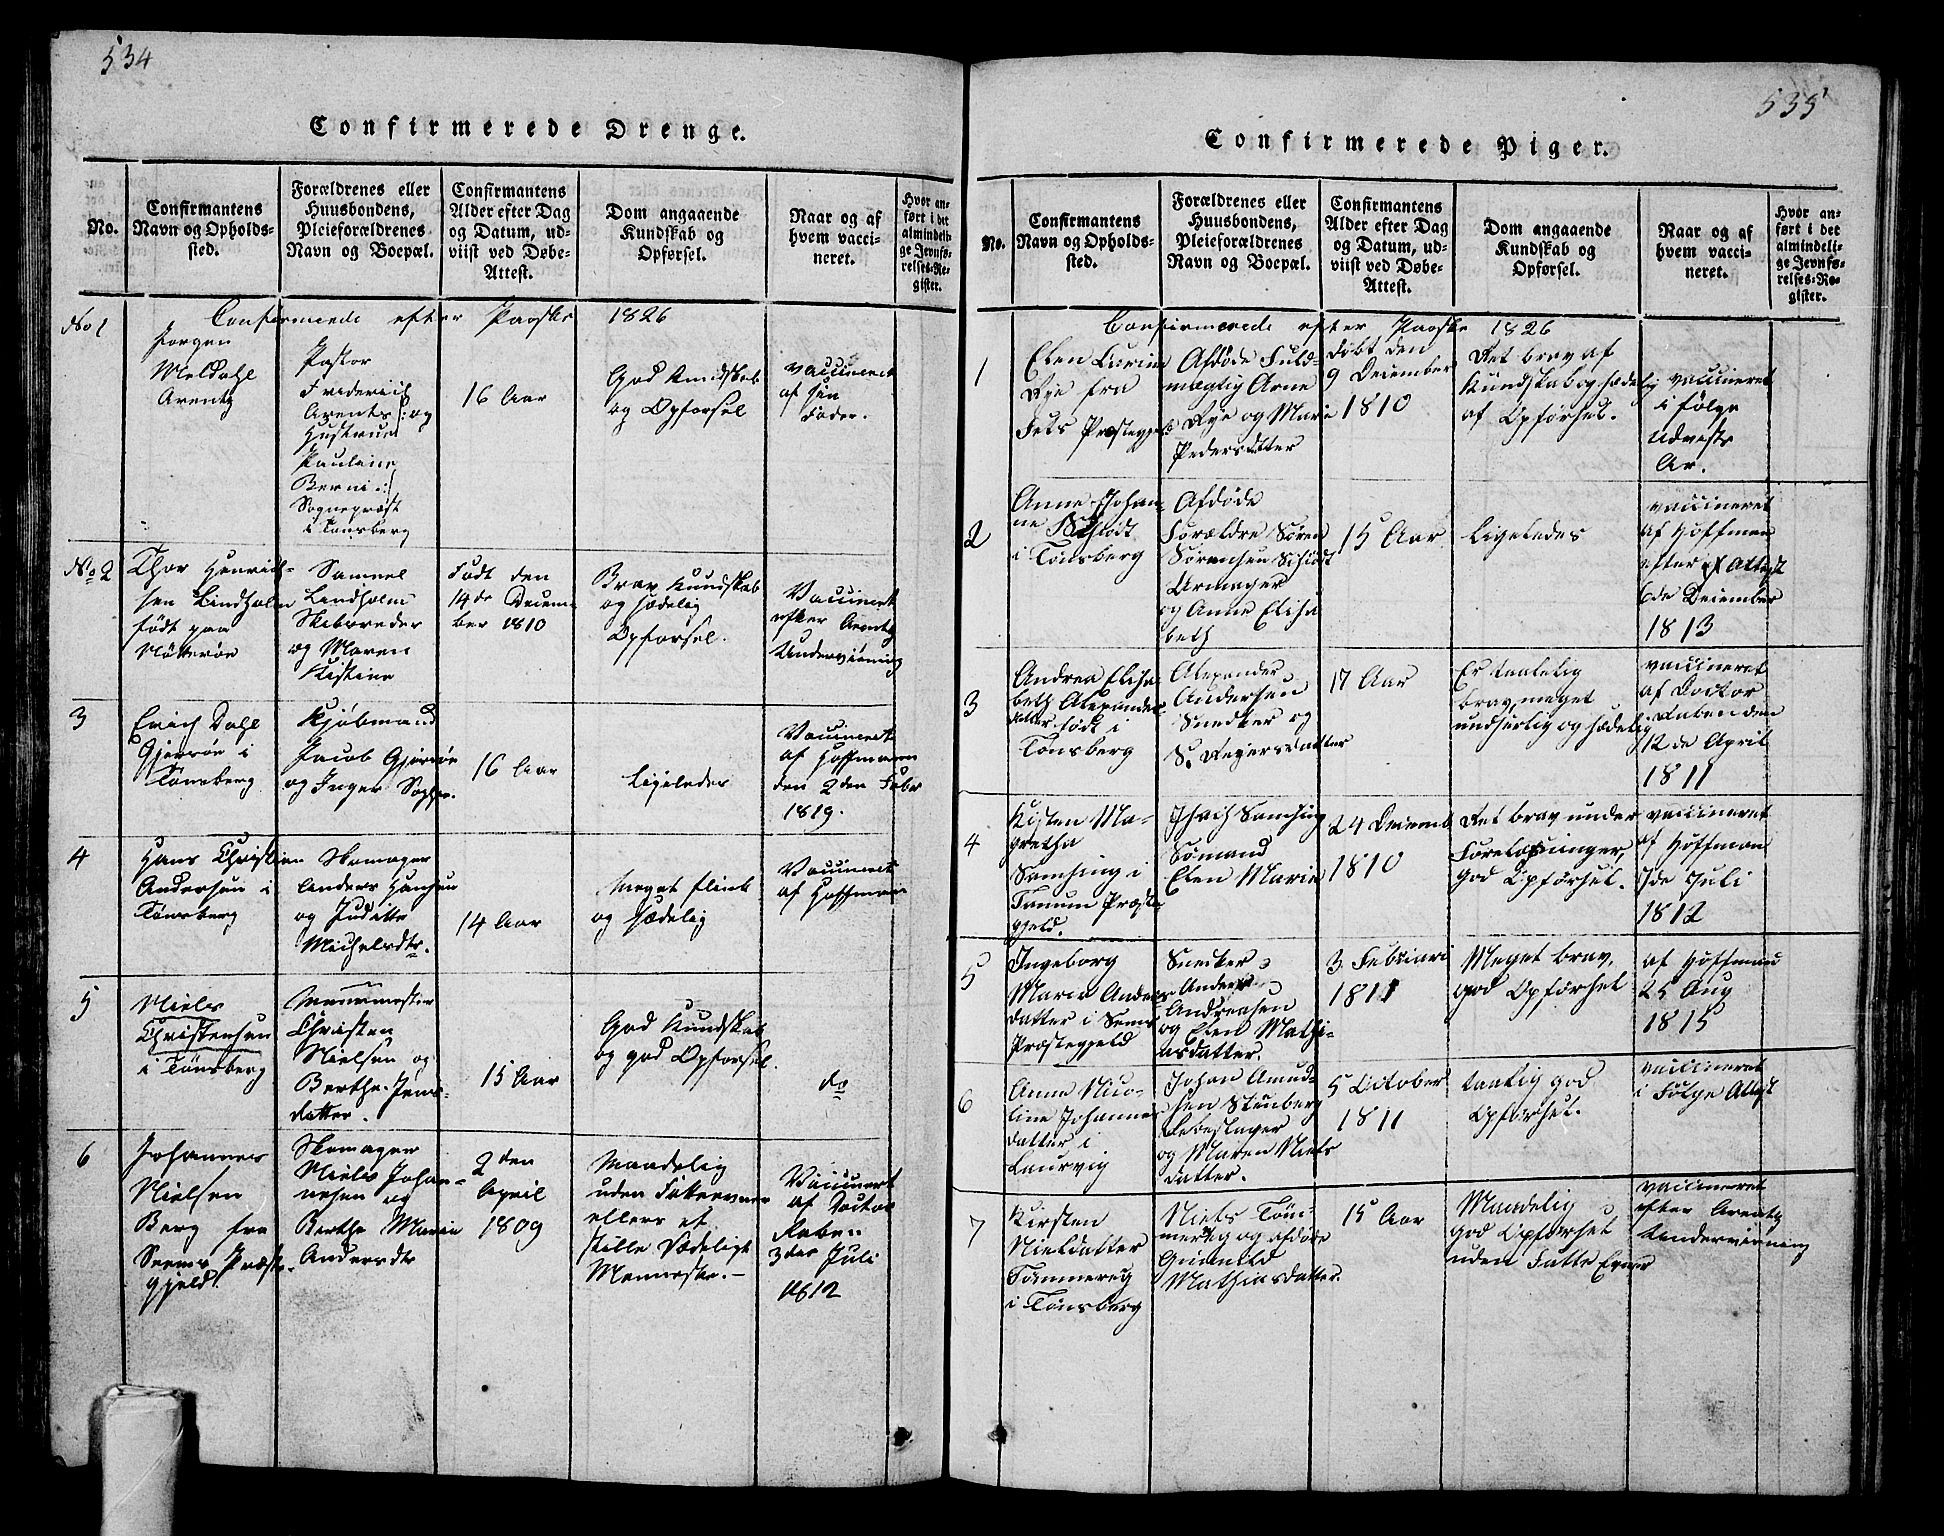 534
Confirmerede Drenge.
No.
Confirmantens
Navn og Opholds-
sted.
Forældrenes eller
Huusbondens,
Pleieforældrenes
Navn og Boepæl.
Confirmantens
Alder efter Dag
og Datum, ud-
viist ved Døbe-
Attest.
Dom angaaende
Kundskab og
Opførsel.
Naar og af
hvem vacci-
neret.
Hvor an-
ført i det
almindeli-
ge Jevnfø-
relses-Re-
gister.
Confirmerede efter Paaske 1826
No 1
Jørgen
Meldahl
Arentz
Pastor
Friderich
Arents /: og
Hustrue
Pauline
Berni :/
Sognepræst
i Tønsberg
16 Aar
God Kundskab
og Opførsel
vaccineret
af sin
Fader.
No 2
Thor Henrich-
sen Lindholm
født paa
Nøtterøe
Samuel
Lindholm
Skibsreder
og Maren
Kistine
Født den
14de Decem-
ber 1810
Brav Kundskab
og sædelig
Opførsel.
Vaccineret
efter Arentz
Underviisning
3
Erich Dahl
Gjersøe i
Tønsberg
Kjøbmand
Jacob Gjersøe
og Inger Sophie.
16 Aar
Ligeledes
Vaccineret
af Hoffmann
den 2den Febr
1819.
4
Hans Christian
Andersen i
Tønsberg
Skomager
Anders Hansen
og Juditte
Michelsdtr.
14 Aar
Meget flink
og sædelig
Vaccineret
af Hoffmann
5
Niels
Christensen
i Tønsberg
Muurmester
Christen
Nielsen og
Berthe Jens-
datter.
15 Aar
God Kundskab
og god Opførsel.
do
6
Johannes
Nielsen
Berg fra
Seems Præste-
gjeld.
Skomager
Niels Johan-
nesen og
Berthe Marie
Andersdtr
2den
April
1809
Maadelig
uden Fatteevne
ellers et
stille Sædeligt
Menneske.-
Vaccineret
af Doctor
Raben
3die Juli
1812
535
Confirmerede Piger.
No.
Confirmantens
Navn og Opholds-
sted.
Forældrenes eller
Huusbondens,
Pleieforældrenes
Navn og Boepæl.
Confirmantens
Alder efter Dag
og Datum, ud-
viist ved Døbe-
Attest.
Dom angaaende
Kundskab og
Opførsel.
Naar og af
hvem vacci-
neret.
Hvor an-
ført i det
almindeli-
ge Jevnfø-
relses-Re-
gister.
Confirmerede efter Paaske 1826
1
Elen Carine
Rye fra
Fets Præstegjeld
Afdøde Fuld-
mægtig Arne
Rye og Marie
Pedersdatter
Døbt den
9 December
1810
Ret brav af
Kundskab og sædelig
af Opførsel.
vaccineret
i følge
Udvists
Ar.
2
Anne Johan-
ne Schiødt
i Tønsberg
Afdøde
Forældre Søren
Sørensen Schiødt
Urmager
og Anne Elisa
beth
15 Aar
Ligeledes
vaccineret
af Hoffman
efter Attest
6de December
1813
3
Andrea Elisa-
beth Alexander
datter født i
Tønsberg
Alexander
Andersen
Snedker og
S. Reyersdatter
17 Aar
Er taalelig
brav, meget
undseelig og sædelig
vaccineret
af Doctor
Raben den
12de April
1811
4
Kisten Ma-
gretha
Samsing i
Tanum Præste-
gjeld.
Ishach Samsing
Sømand
Elen Marie
24 Decemb
1810
Ret brav under
Forelæsninger,
God Opførsel.
vaccineret
af Hoffman
7de Juli
1812
5
Ingeborg
Marie Anders
datter i Sems
Præstegjeld
Snecker
Anders
Andreasen
og Elen Mathi-
asdatter.
3 Februari
1811
Meget brav,
god Opførsel
af Hoffmand
25 Aug
1815
6
Anne Nico-
line Johannes
datter i
Laurvig
Johan Amund-
sen Stenberg
Rebeslager
og Maren Niels
datter.
5 October
1811
taalig god
Opførsel.
vaccineret
i Følge Attest
7
Kirsten
Nielsdatter
Tømmerug
i Tønsberg
Niels Tøm-
merug og afdøde
Gunnild
Mathiasdatter.
15 Aar
Maadelig
god Opførsel
uden Fatte Evner
vaccineret
efter Arentz
Underviisning